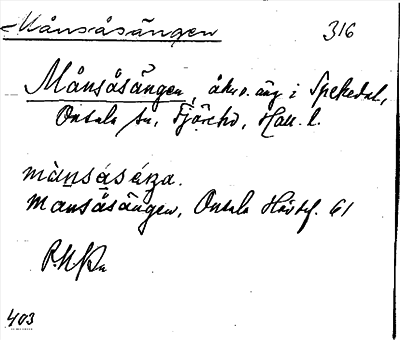 Månsåsängen 316
Månsåsängen, åker o. äng i Spekedal,
Onsala sn, Fjäre hd, Hall. l.
mànsásäŋa.
Månsåsängen, Onsala Hdskf. 61
403